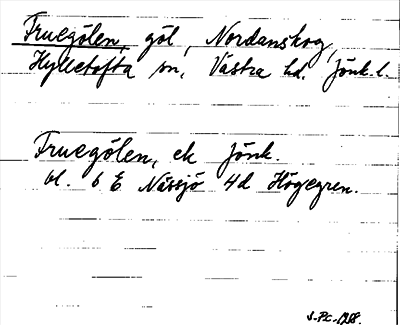 Fruegölen, göl, Nordanskog,
Hylletofta sn, Västra hd, Jönk. l.
Fruegölen, ek Jönk.
bl. 6 E Nässjö 4d Högegren.